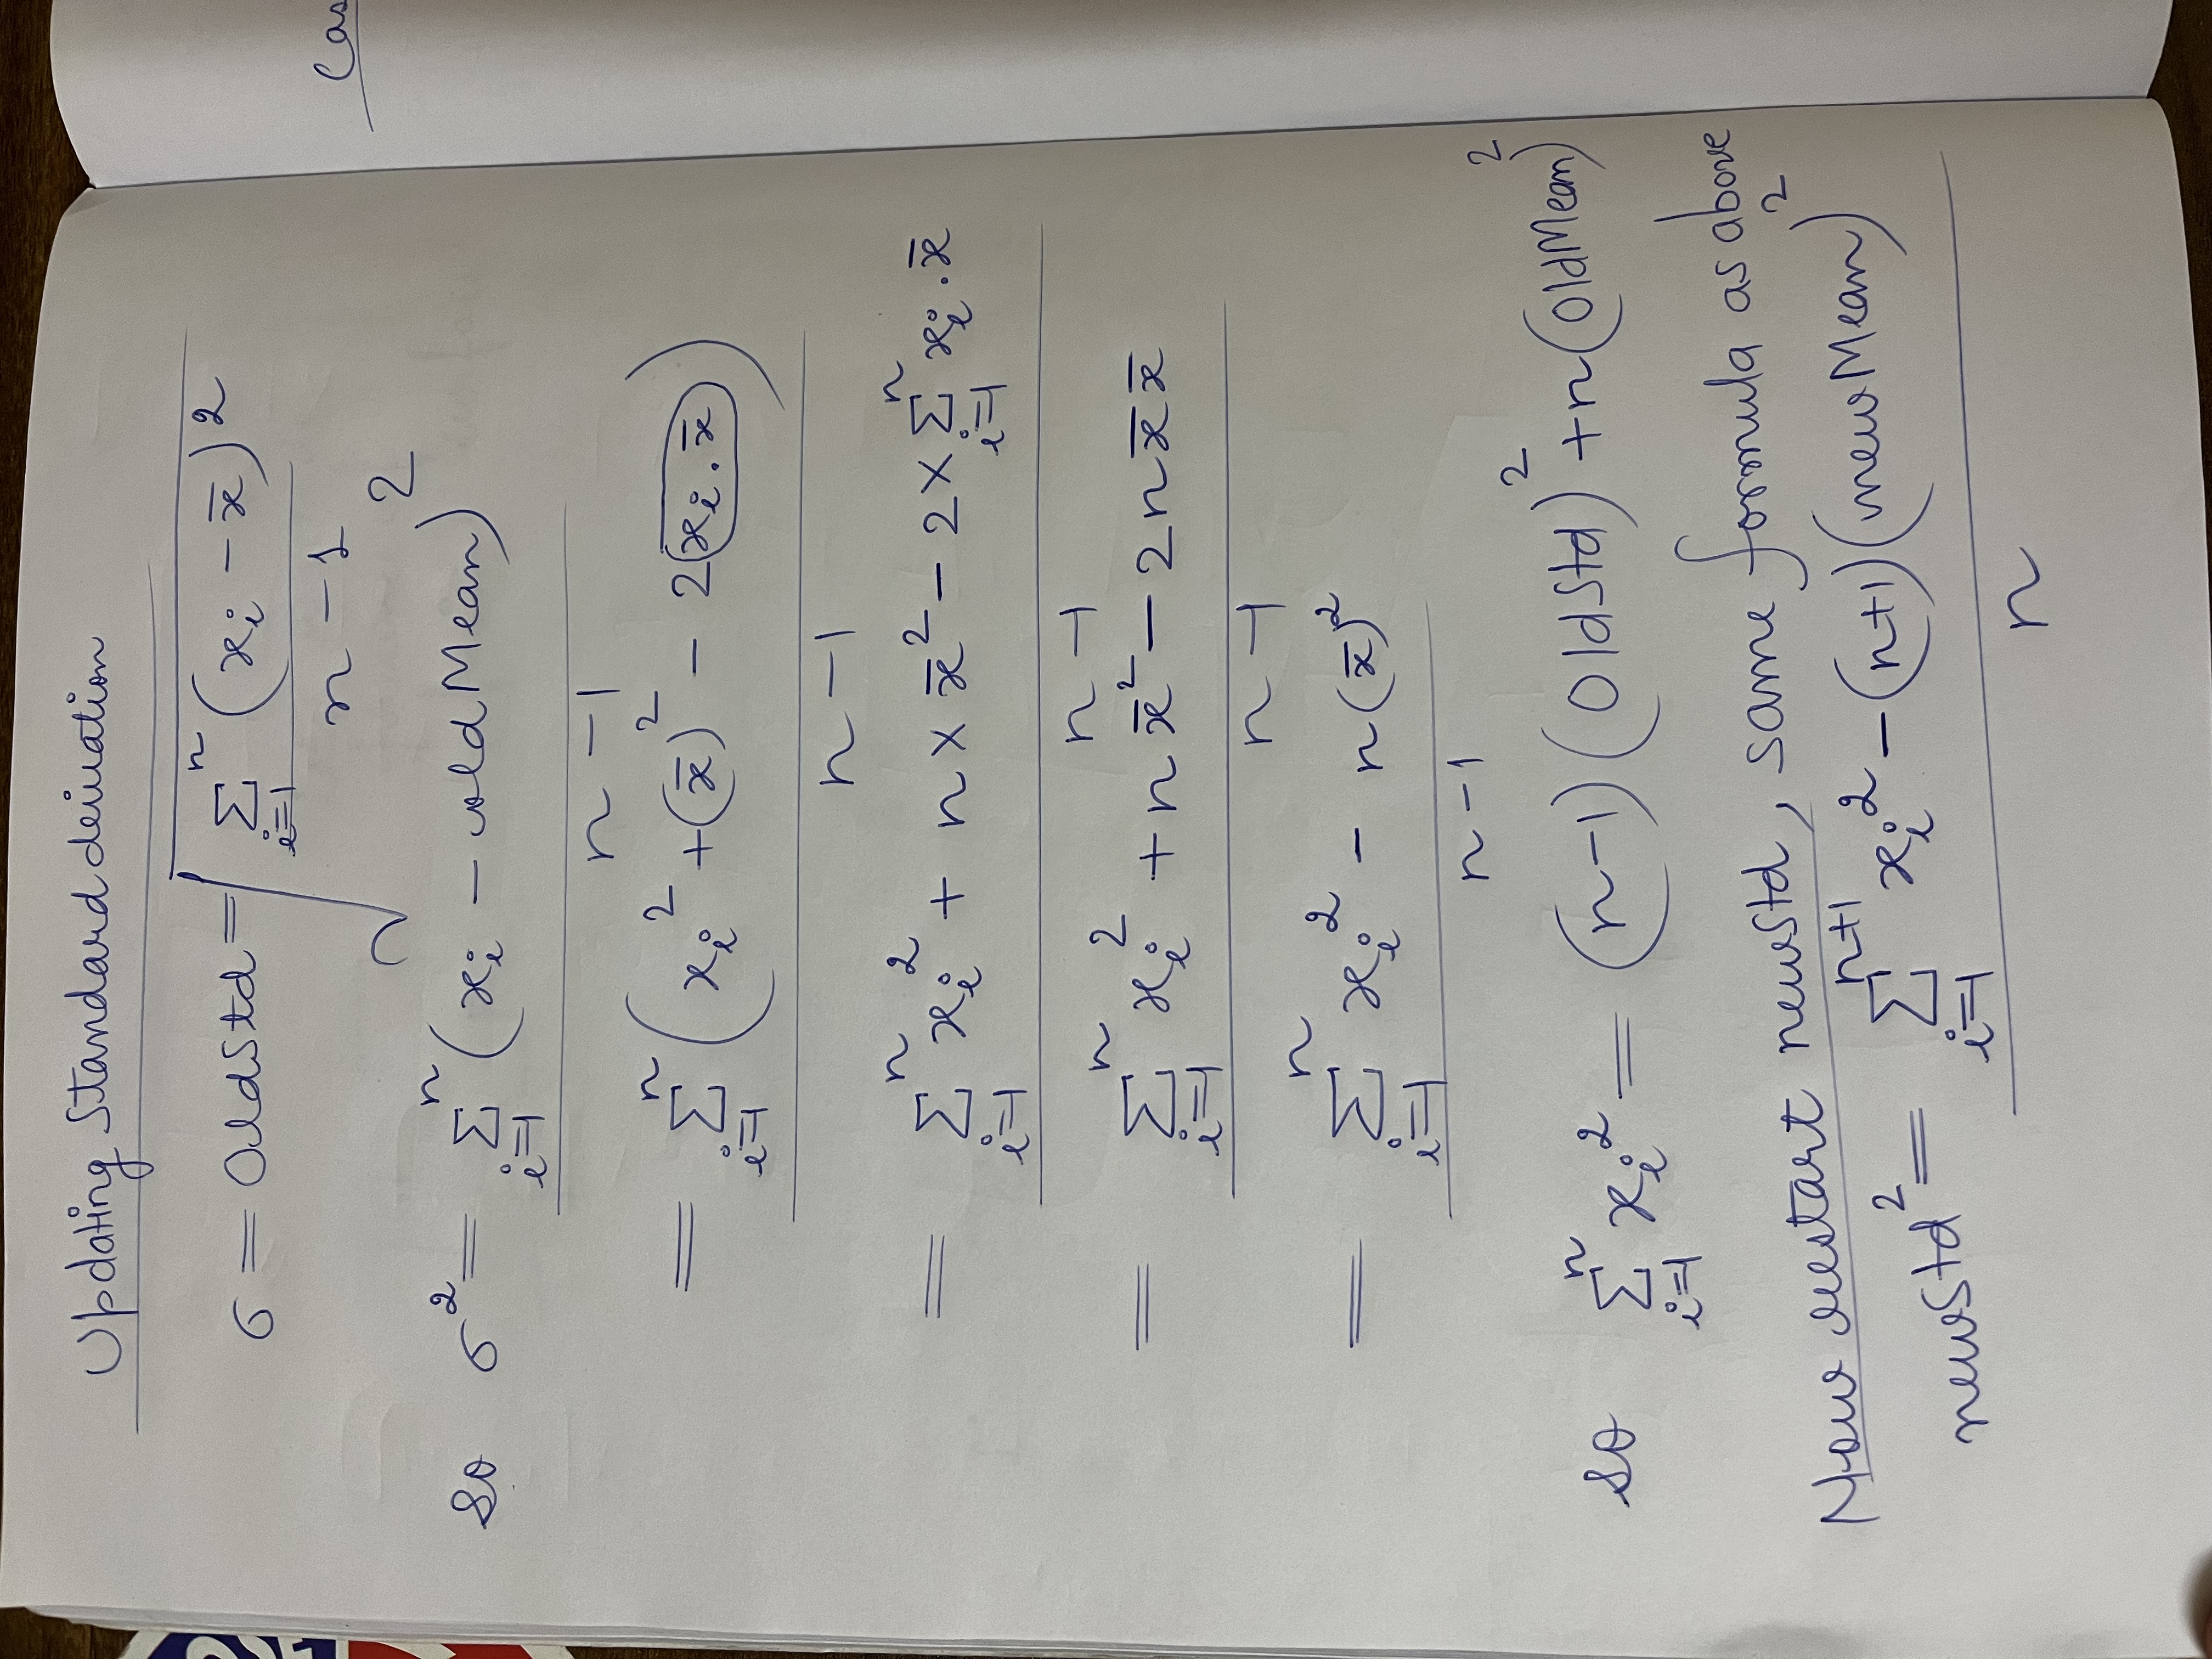 Updating Standard deviation
σ = OldStd = √( Σᵢ₌₁ⁿ (xᵢ − x̄)² / (n − 1) )
so σ² = Σᵢ₌₁ⁿ (xᵢ − oldMean)² / (n − 1)
= Σᵢ₌₁ⁿ (xᵢ² + (x̄)² − 2 xᵢ . x̄) / (n − 1)
= ( Σᵢ₌₁ⁿ xᵢ² + n × x̄² − 2 × Σᵢ₌₁ⁿ xᵢ . x̄ ) / (n − 1)
= ( Σᵢ₌₁ⁿ xᵢ² + n x̄² − 2n x̄ x̄ ) / (n − 1)
= ( Σᵢ₌₁ⁿ xᵢ² − n(x̄)² ) / (n − 1)
so Σᵢ₌₁ⁿ xᵢ² = (n−1) (OldStd)² + n (OldMean)²
Now restart newStd, same formula as above
newStd² = ( Σᵢ₌₁ⁿ⁺¹ xᵢ² − (n+1) (newMean)² ) / n